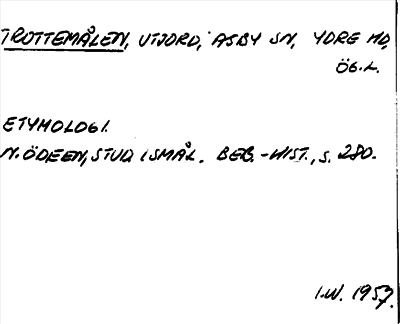 TROTTEMÅLEN, UTJORD, ASBY SN, YDRE HD,
ÖG.L.
ETYMOLOGI.
N. ÖDEEN, STUD I SMÅL. BEB.-HIST., S. 280.
I.W. 1957.